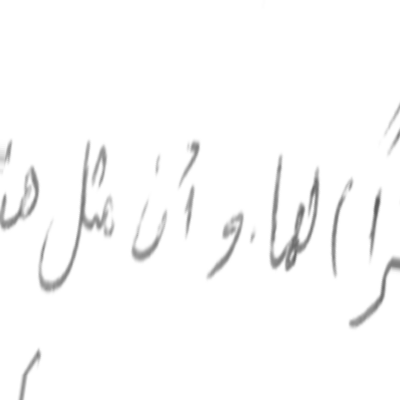 راً) لها. و أن مثل هذ